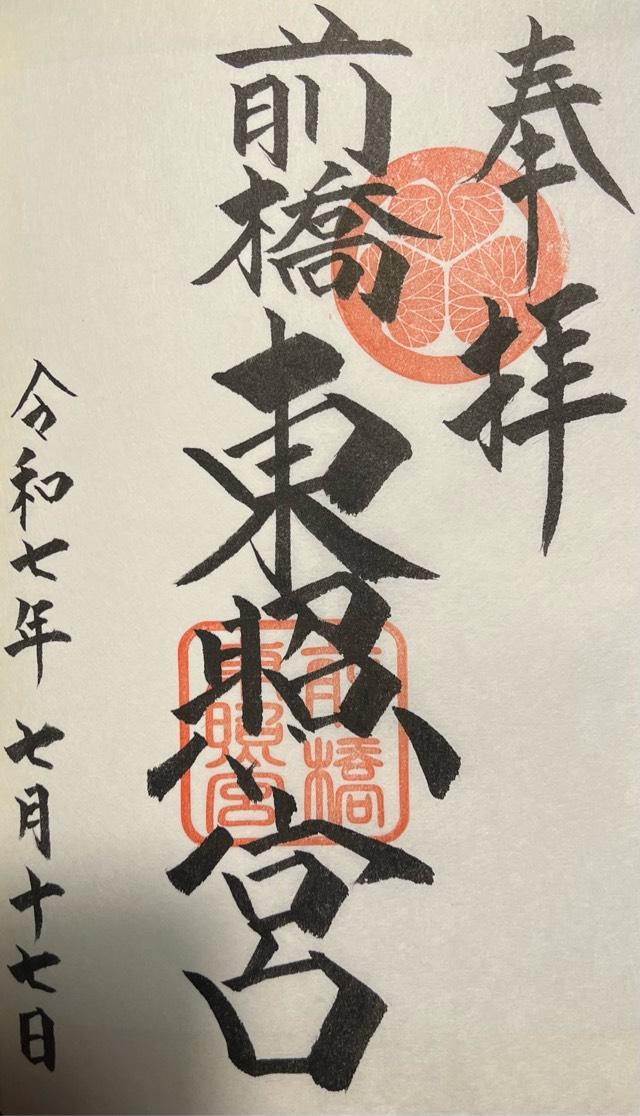 奉拝
前橋東照宮
前橋
東照宮
令和七年七月十七日